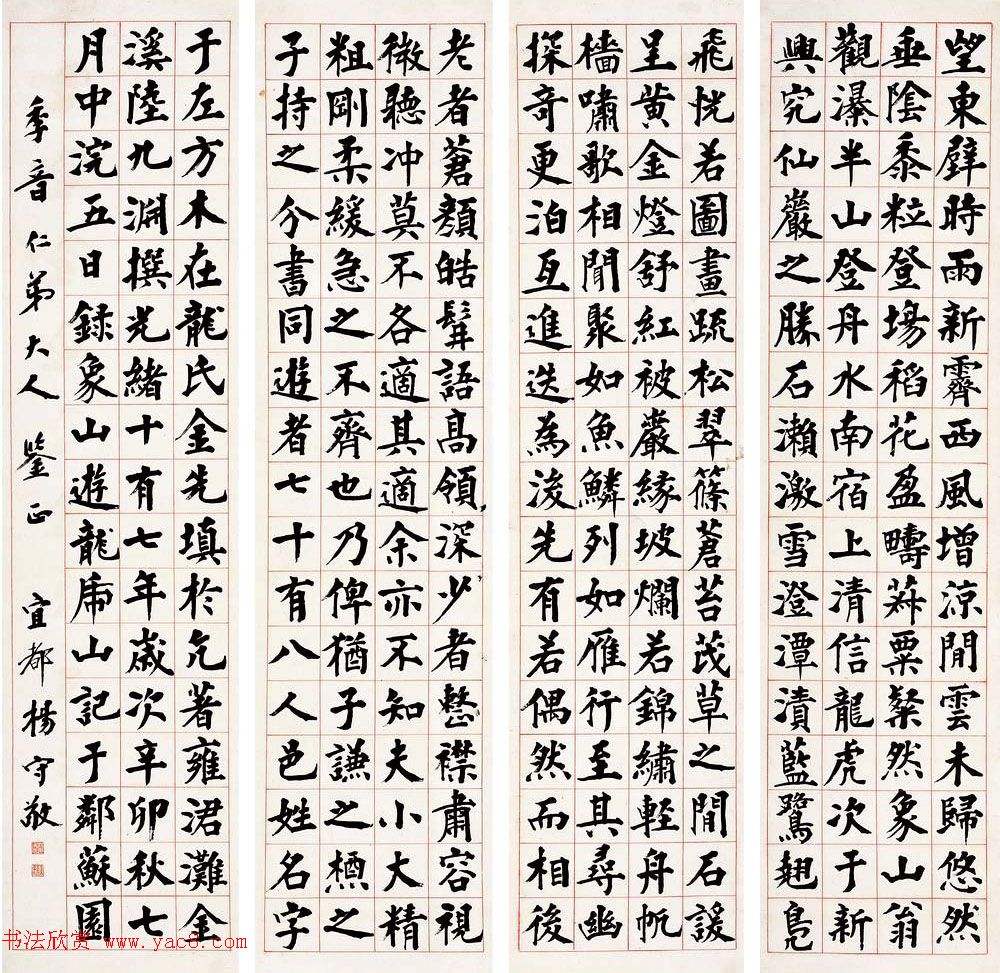 望東壁時雨新霽西風增涼閒雲未歸悠然
垂陰黍粒登場稻花盈疇菽粟粲然象山翁
觀瀑半山登舟水南宿上清信龍虎次于新
興究仙巖之勝石瀨激雪澄潭漬藍鷺翹鳧
飛恍若圖畫疏松翠篠蒼苔茂草之間石諼
呈黄金燈舒紅被巖緣坡爛若錦繡輕舟帆
檣嘯歌相聞聚如魚鱗列如雁行至其尋幽
探奇更泊互進迭為後先有若偶然而相後
老者蒼顏皓髯語高領深少者整襟肅容視
微聽冲莫不各適其適余亦不知夫小大精
粗剛柔緩急之不齊也乃俾猶子謙之櫄之
子持之分書同遊者七十有八人邑姓名字
于左方木在龍氏金先填於亢著雍涒灘金
溪陸九淵撰光緒十有七年歲次辛卯秋七
月中浣五日録象山遊龍虎山記于鄰蘇園
季音仁弟大人 鑒正 宜都楊守敬
书法欣赏 www.yac8.com